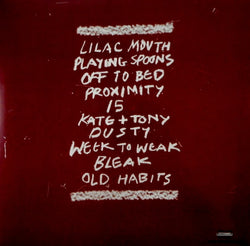 LILAC MOUTH
PLAYING SPOONS
OFF TO BED
PROXIMITY
15
KATE + TONY
DUSTY
WEEK TO WEAK
BLEAK
OLD HABITS